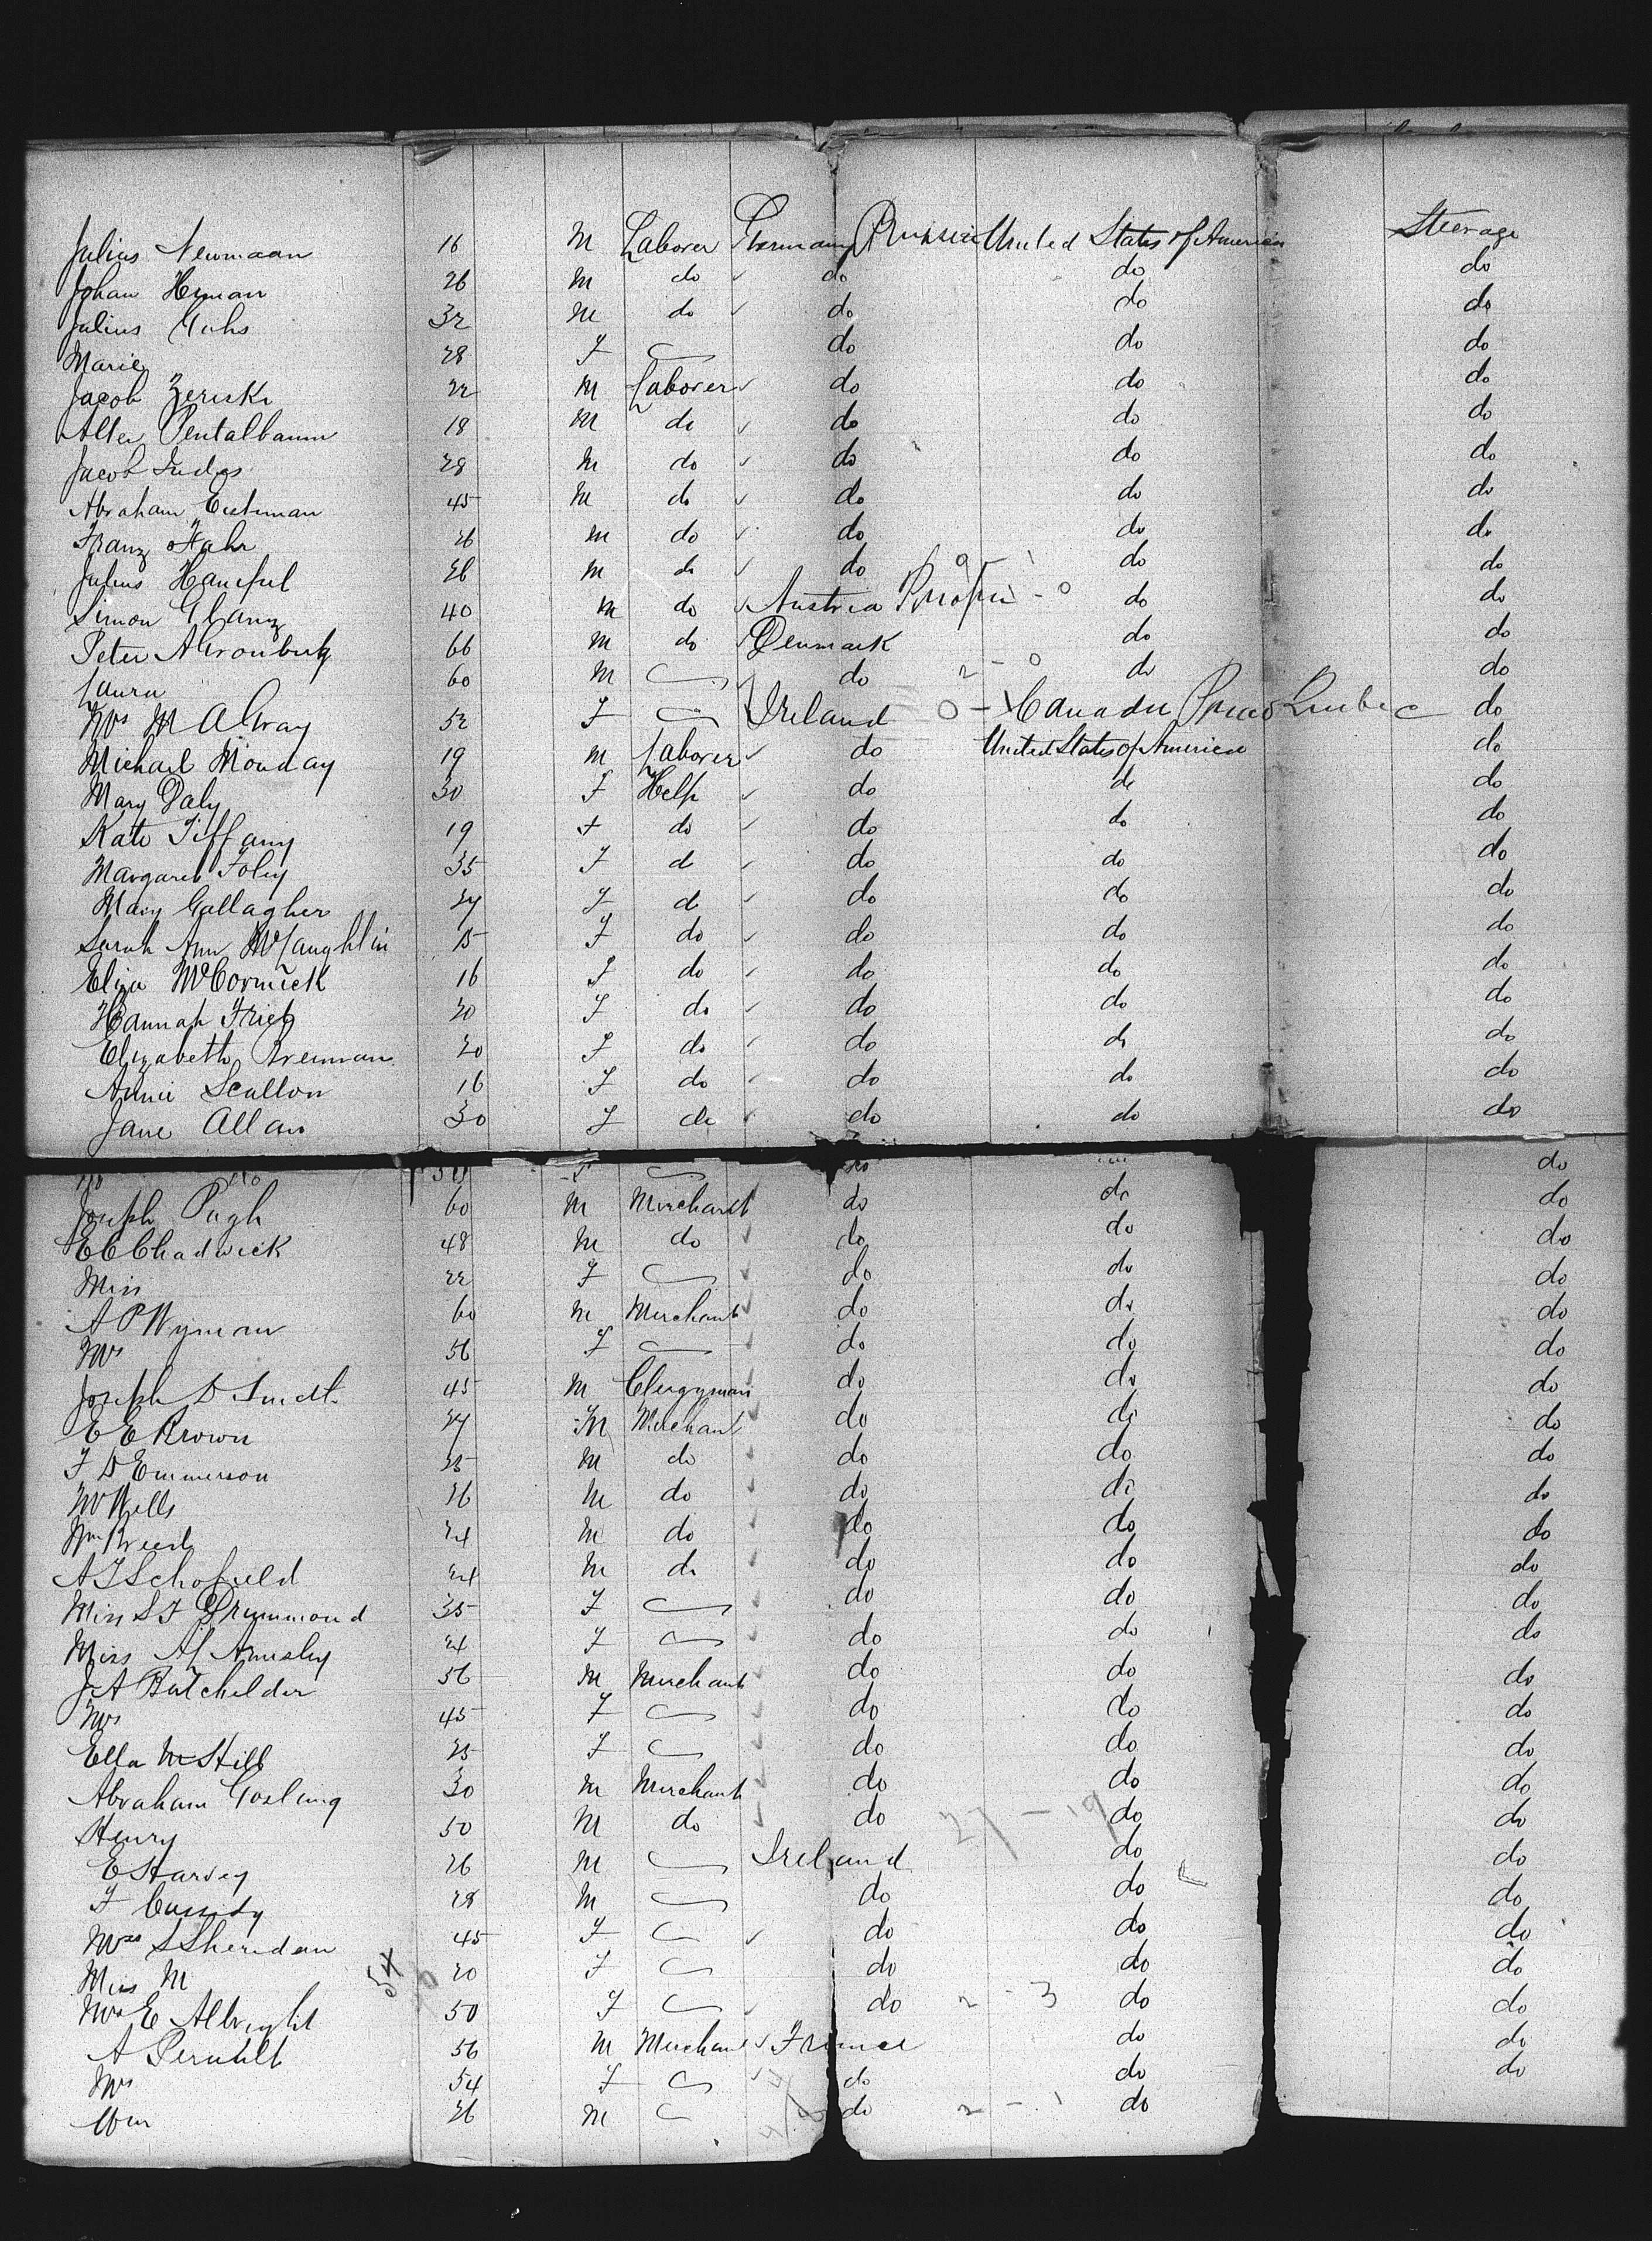 Julius Newmaan 16 M Laborer Germany Prussia United States of America Steerage
Johan Heman 26 M do do do do
Julius Guhs 32 M do do do do
Marie 28 F do do do
Jacob Zeruski 22 M Laborer do do do
Alter Pentalbaum 18 M do do do do
Jacob Judes 28 M do do do do
Abraham Eichman 45 M do do do do
Franz Hahr 26 M do do do do
Julius 26 M do do do do
Simon Glanz 40 M do Austria do do
Peter 66 M do Denmark do do
Laura 60 M do 2 - 0 do do
Mrs M A Gray 52 F Ireland 0 - Canada Quebec do
Michael Monday 19 M Laborer do United States of America do
Mary Daly 30 F Help do do do
Kate Tiffany 19 F do do do do
Margaret Foley 35 F do do do do
Mary Gallagher 24 F do do do do
Sarah Ann McLaughlin 15 F do do do do
Eliza McCormick 16 F do do do do
Hannah Friel 20 F do do do do
Elizabeth Brennan 20 F do do do do
Annie Scallon 16 F do do do do
Jane Allan 30 F do do do do
do do 50 F do do do
Joseph Pugh 60 M Merchant do do do
E C Chadwick 48 M do do do do
Miss 22 F do do do
A P Wyman 60 M Merchant do do do
Mrs 56 F do do do
Joseph D 45 M Clergyman do do do
E E Brown 24 M Merchant do do do
F D Emmerson 25 M do do do do
W Wells 26 M do do do do
Wm 24 M do do do do
A T Schofield 24 M do do do do
Miss S F Drummond 35 F do do do
Miss A Annesley 24 F do do do
J A Batchelder 56 M Merchant do do do
Mrs 45 F do do do
Ella M Hill 25 F do do do
Abraham Gosling 30 M Merchant do do do
Henry 50 M do do 27 - 19 do do
E Harvey 26 M Ireland do do
F Cassidy 28 M do do do
Mrs S Sheridan 45 F do do do
Miss M 54 20 F do do do
Mrs E Albright 50 F do 2 - 3 do do
A Perault 56 M Merchant France do do
Mrs 54 F do do do
Wm 26 M do 2 - 1 do